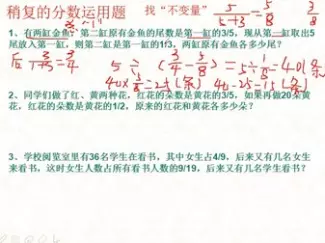 稍复的分数运用题 找“不变量” 5/(5+3)=5/8 3/8
1、有两缸金鱼，第二缸原有金鱼的尾数是第一缸的3/5，现从第二缸取出5
尾放入第一缸，则第二缸是第一缸的1/3，两缸原有金鱼各多少尾？
后 3/4 5÷(3/4-5/8)=5÷1/8=40(条)
40×5/8=25(条) 40-25=15(条)
2、同学们做了红、黄两种花，红花的朵数是黄花的3/5，如果再做20朵黄
花，红花的朵数是黄花的1/2，原来的红花和黄花各多少朵？
3、学校阅览室里有36名学生在看书，其中女生占4/9，后来又有几名女生
来看书，这时女生人数占所有看书人数的9/19，后来又有几名女生看书？